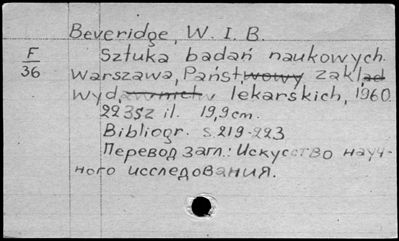 Beveridge, W. I. B.
F
36
Sztuka badań naukowych.
Warszawa, Państwowy zakład
wydawnictw lekarskich, 1960.
223sz il. 19,9cm.
Bibliogr. s. 219-223
Перевод загл.: Искусство науч-
ного исследования.